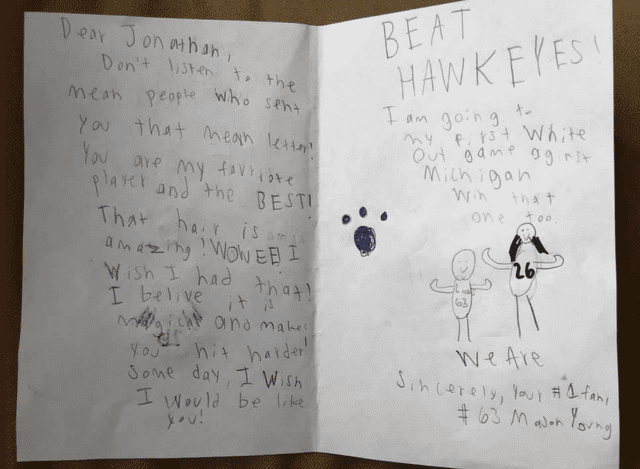 Dear Jonathan,
Don't listen to the
mean people who sent
you that mean letter!
You are my favribte
player and the BEST!
That hair is
amazing! WOWEE! I
Wish I had that!
I belive it is
magical and makes
you hit harder!
Some day, I Wish
I would be like
you!
BEAT
HAWKEYES!
I am going to
my first White
Out game aginst
Michigan
Win that
one too.
26
63
We Are
Sincerely, Your #1 fan,
#63 Mason Young